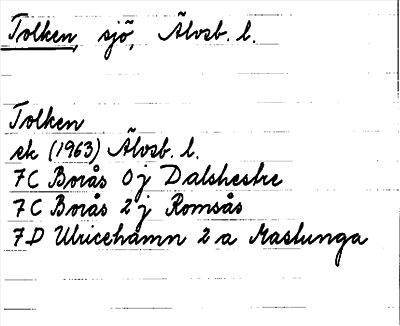 Tolken, sjö, Älvsb. l.
Tolken
ek (1963) Älvsb. l.
7C Borås 0j Dalshestre
7C Borås 2j Romsås
7D Ulricehamn 2a Maslunga